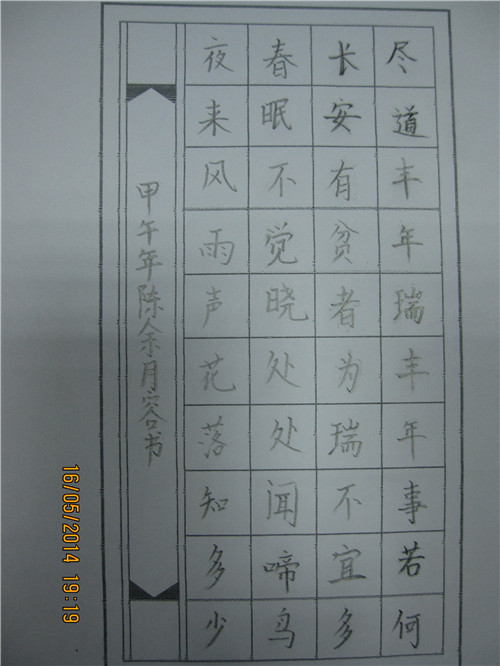 尽道丰年瑞丰年事若何
长安有贫者为瑞不宜多
春眠不觉晓处处闻啼鸟
夜来风雨声花落知多少
甲午年陈余月容书
16/05/2014 19:19